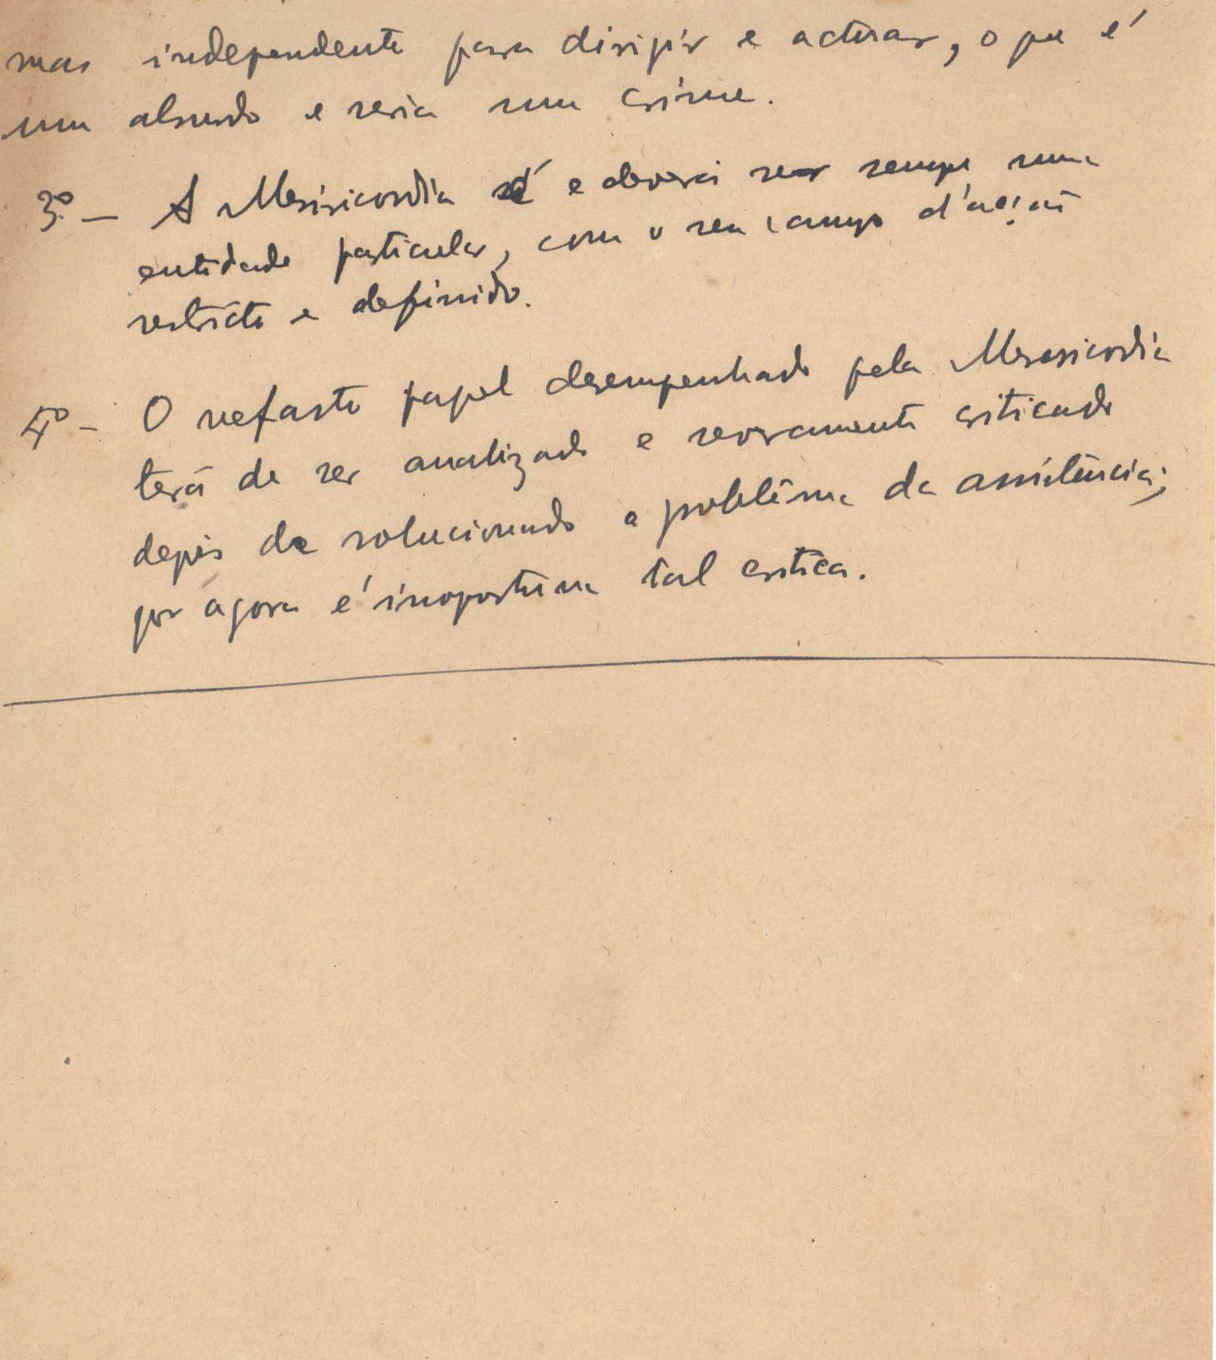 mas independente para dirigir e actuar, o que é
um absurdo e seria um crime.
3º — A Misiricordia é e deverá ser sempre uma
entidade particular, com o seu campo d'acção
restricto e definido.
4º - O nefasto papel desempenhado pela Misericordia
terá de ser analizado e severamente criticado
depois de solucionado o problêma da assistência;
por agora é inoportuna tal critica.